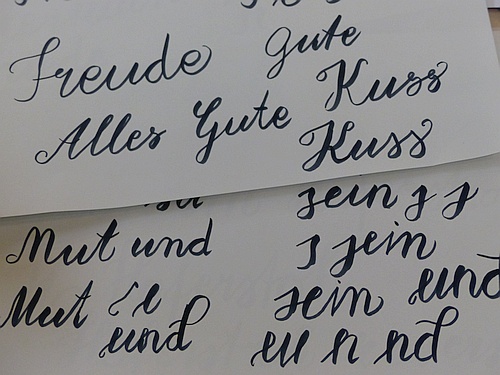 Freude Gute
Alles Gute Kuss
Kuss
sein s s
Mut und s sein
Mut sein und
und eu n nd